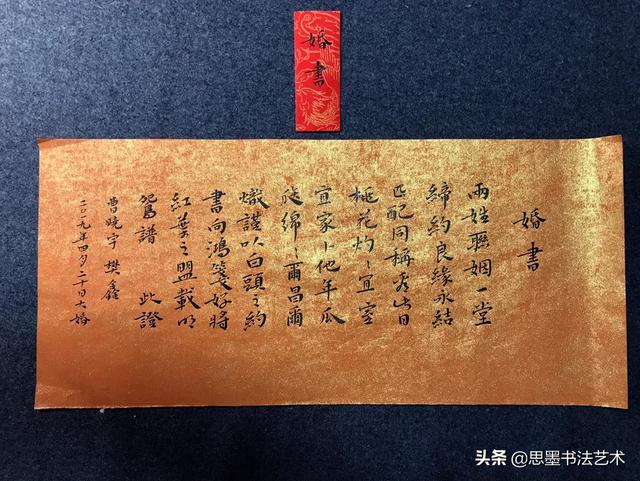 婚書
婚書
兩姓聯姻一堂
締約良緣永結
匹配同稱看此日
桃花灼〻宜室
宜家卜他年瓜
瓞綿〻爾昌爾
熾謹以白頭之約
書向鴻箋好將
紅葉之盟載明
鴛譜 此證
曹曉宇 樊鑫
二〇一九年四月二十日大婚
头条 @思墨书法艺术